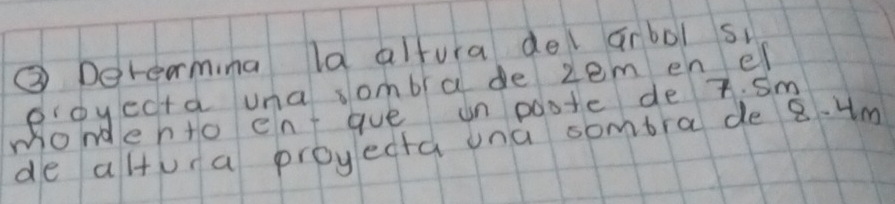 ③ Determina la altura del arbol si
proyecta una sombra de 20m en el
momento en que un poste de 7.5m
de altura proyecta una sombra de 8.4m